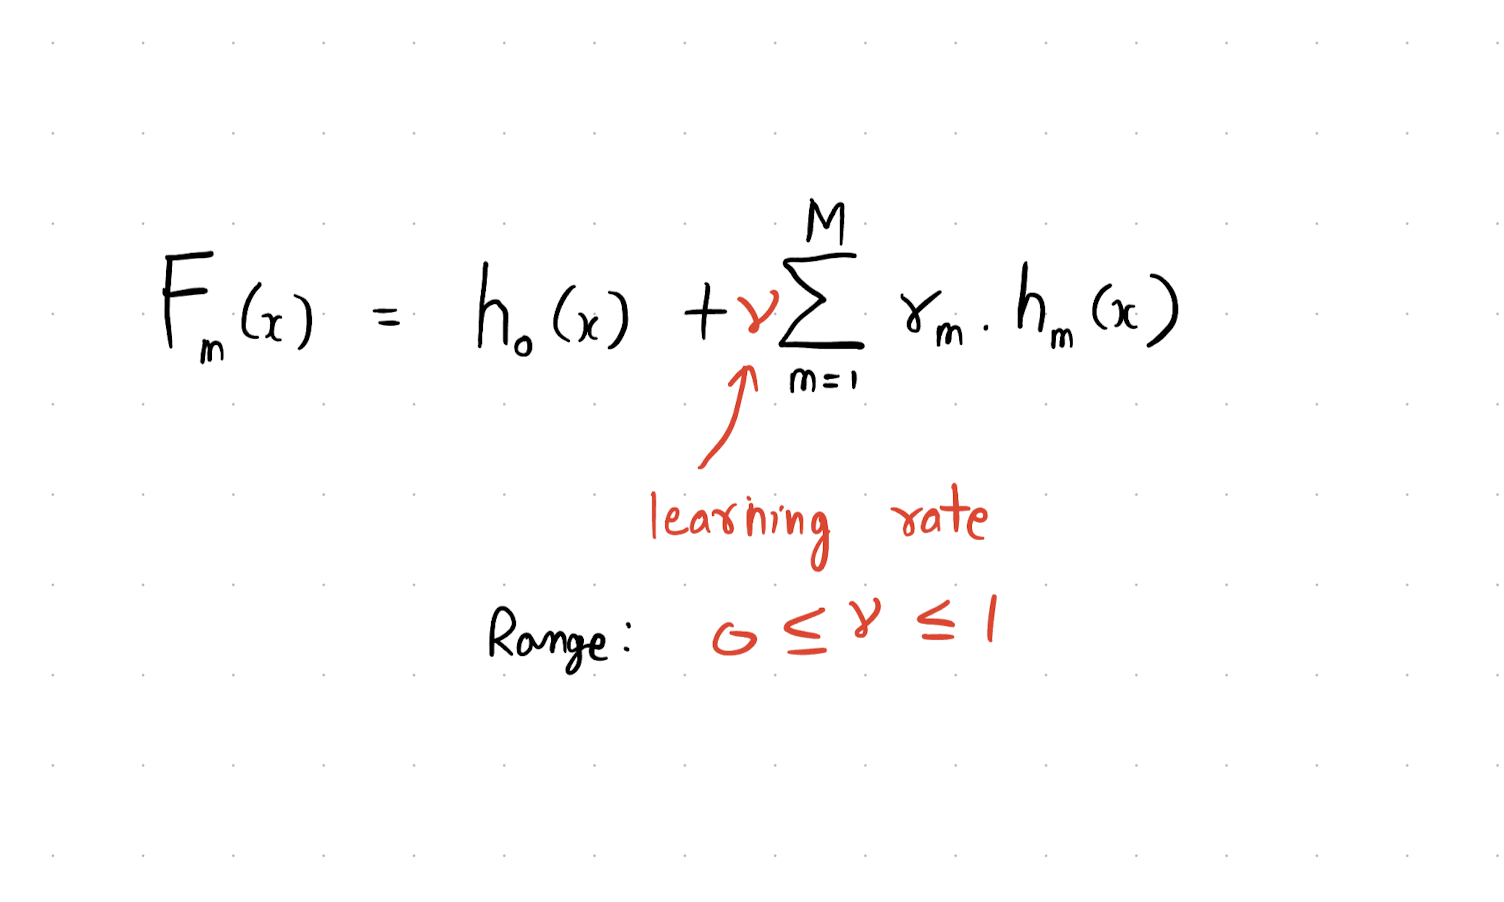 Fₘ(x) = h₀(x) + ν∑ᴹₘ₌₁ γₘ . hₘ(x)
learning rate
Range: 0 ≤ ν ≤ 1